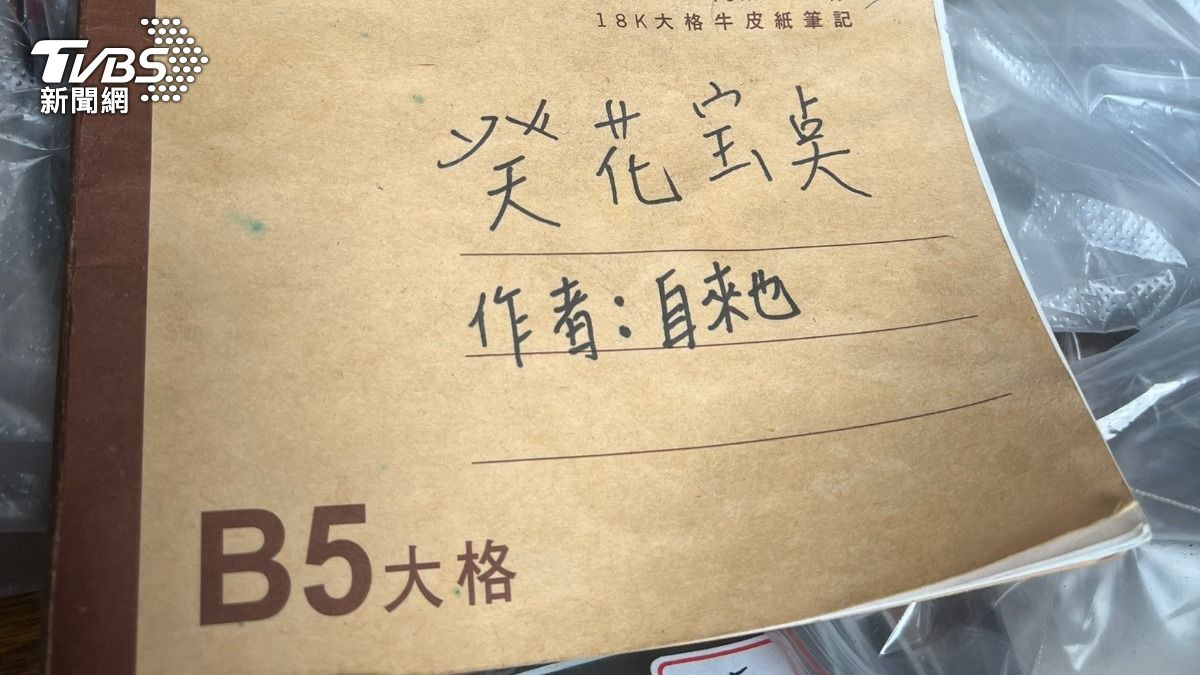 TVBS
新聞網
18K大格牛皮紙筆記
葵花宝典
作者:自來也
B5大格